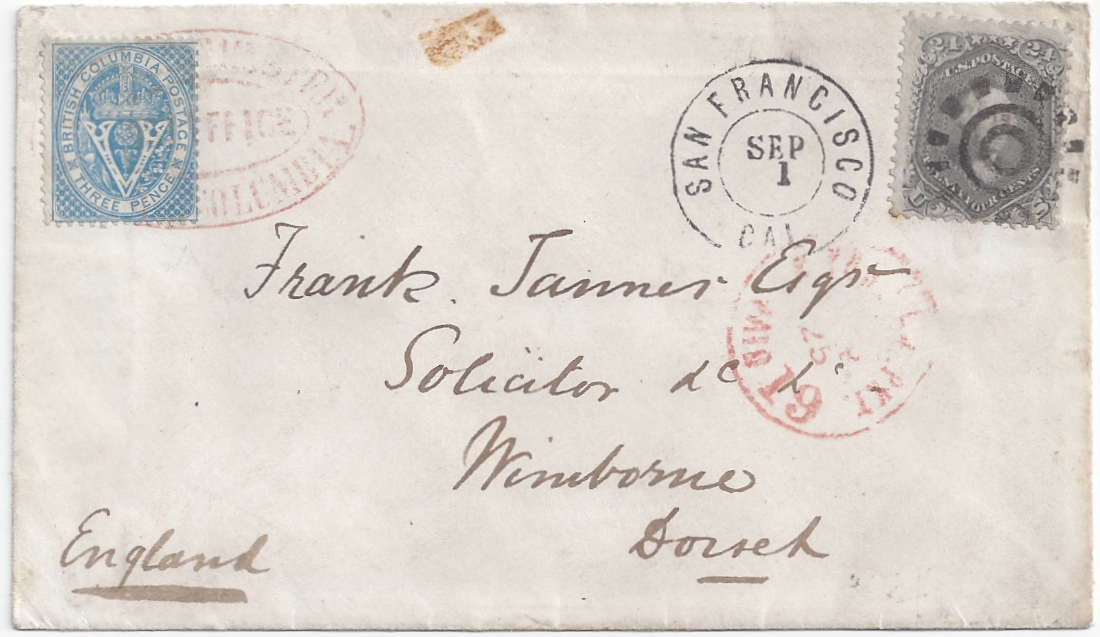 BRITISH COLUMBIA POSTAGE
THREE PENCE
OFFICE
COLUMBIA
SAN FRANCISCO
SEP
1
CAL
24 24
U.S. POSTAGE
U
Frank. Tanner Esqr
Solicitor &c &c
Wimborne
Dorset
England
PKT
25
19